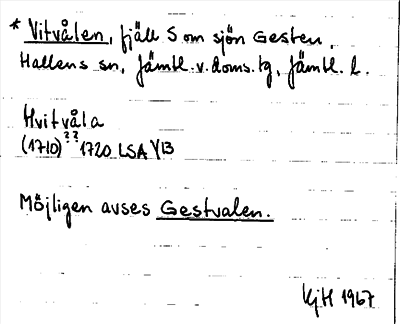 * Vitvålen, fjäll S om sjön Gesten,
Hallens sn, Jämtl. v. doms. tg, Jämtl. l.
Hvitvåla
(1710)?? 1720 LSA Y13
Möjligen avses Gestvalen.
KjH 1967